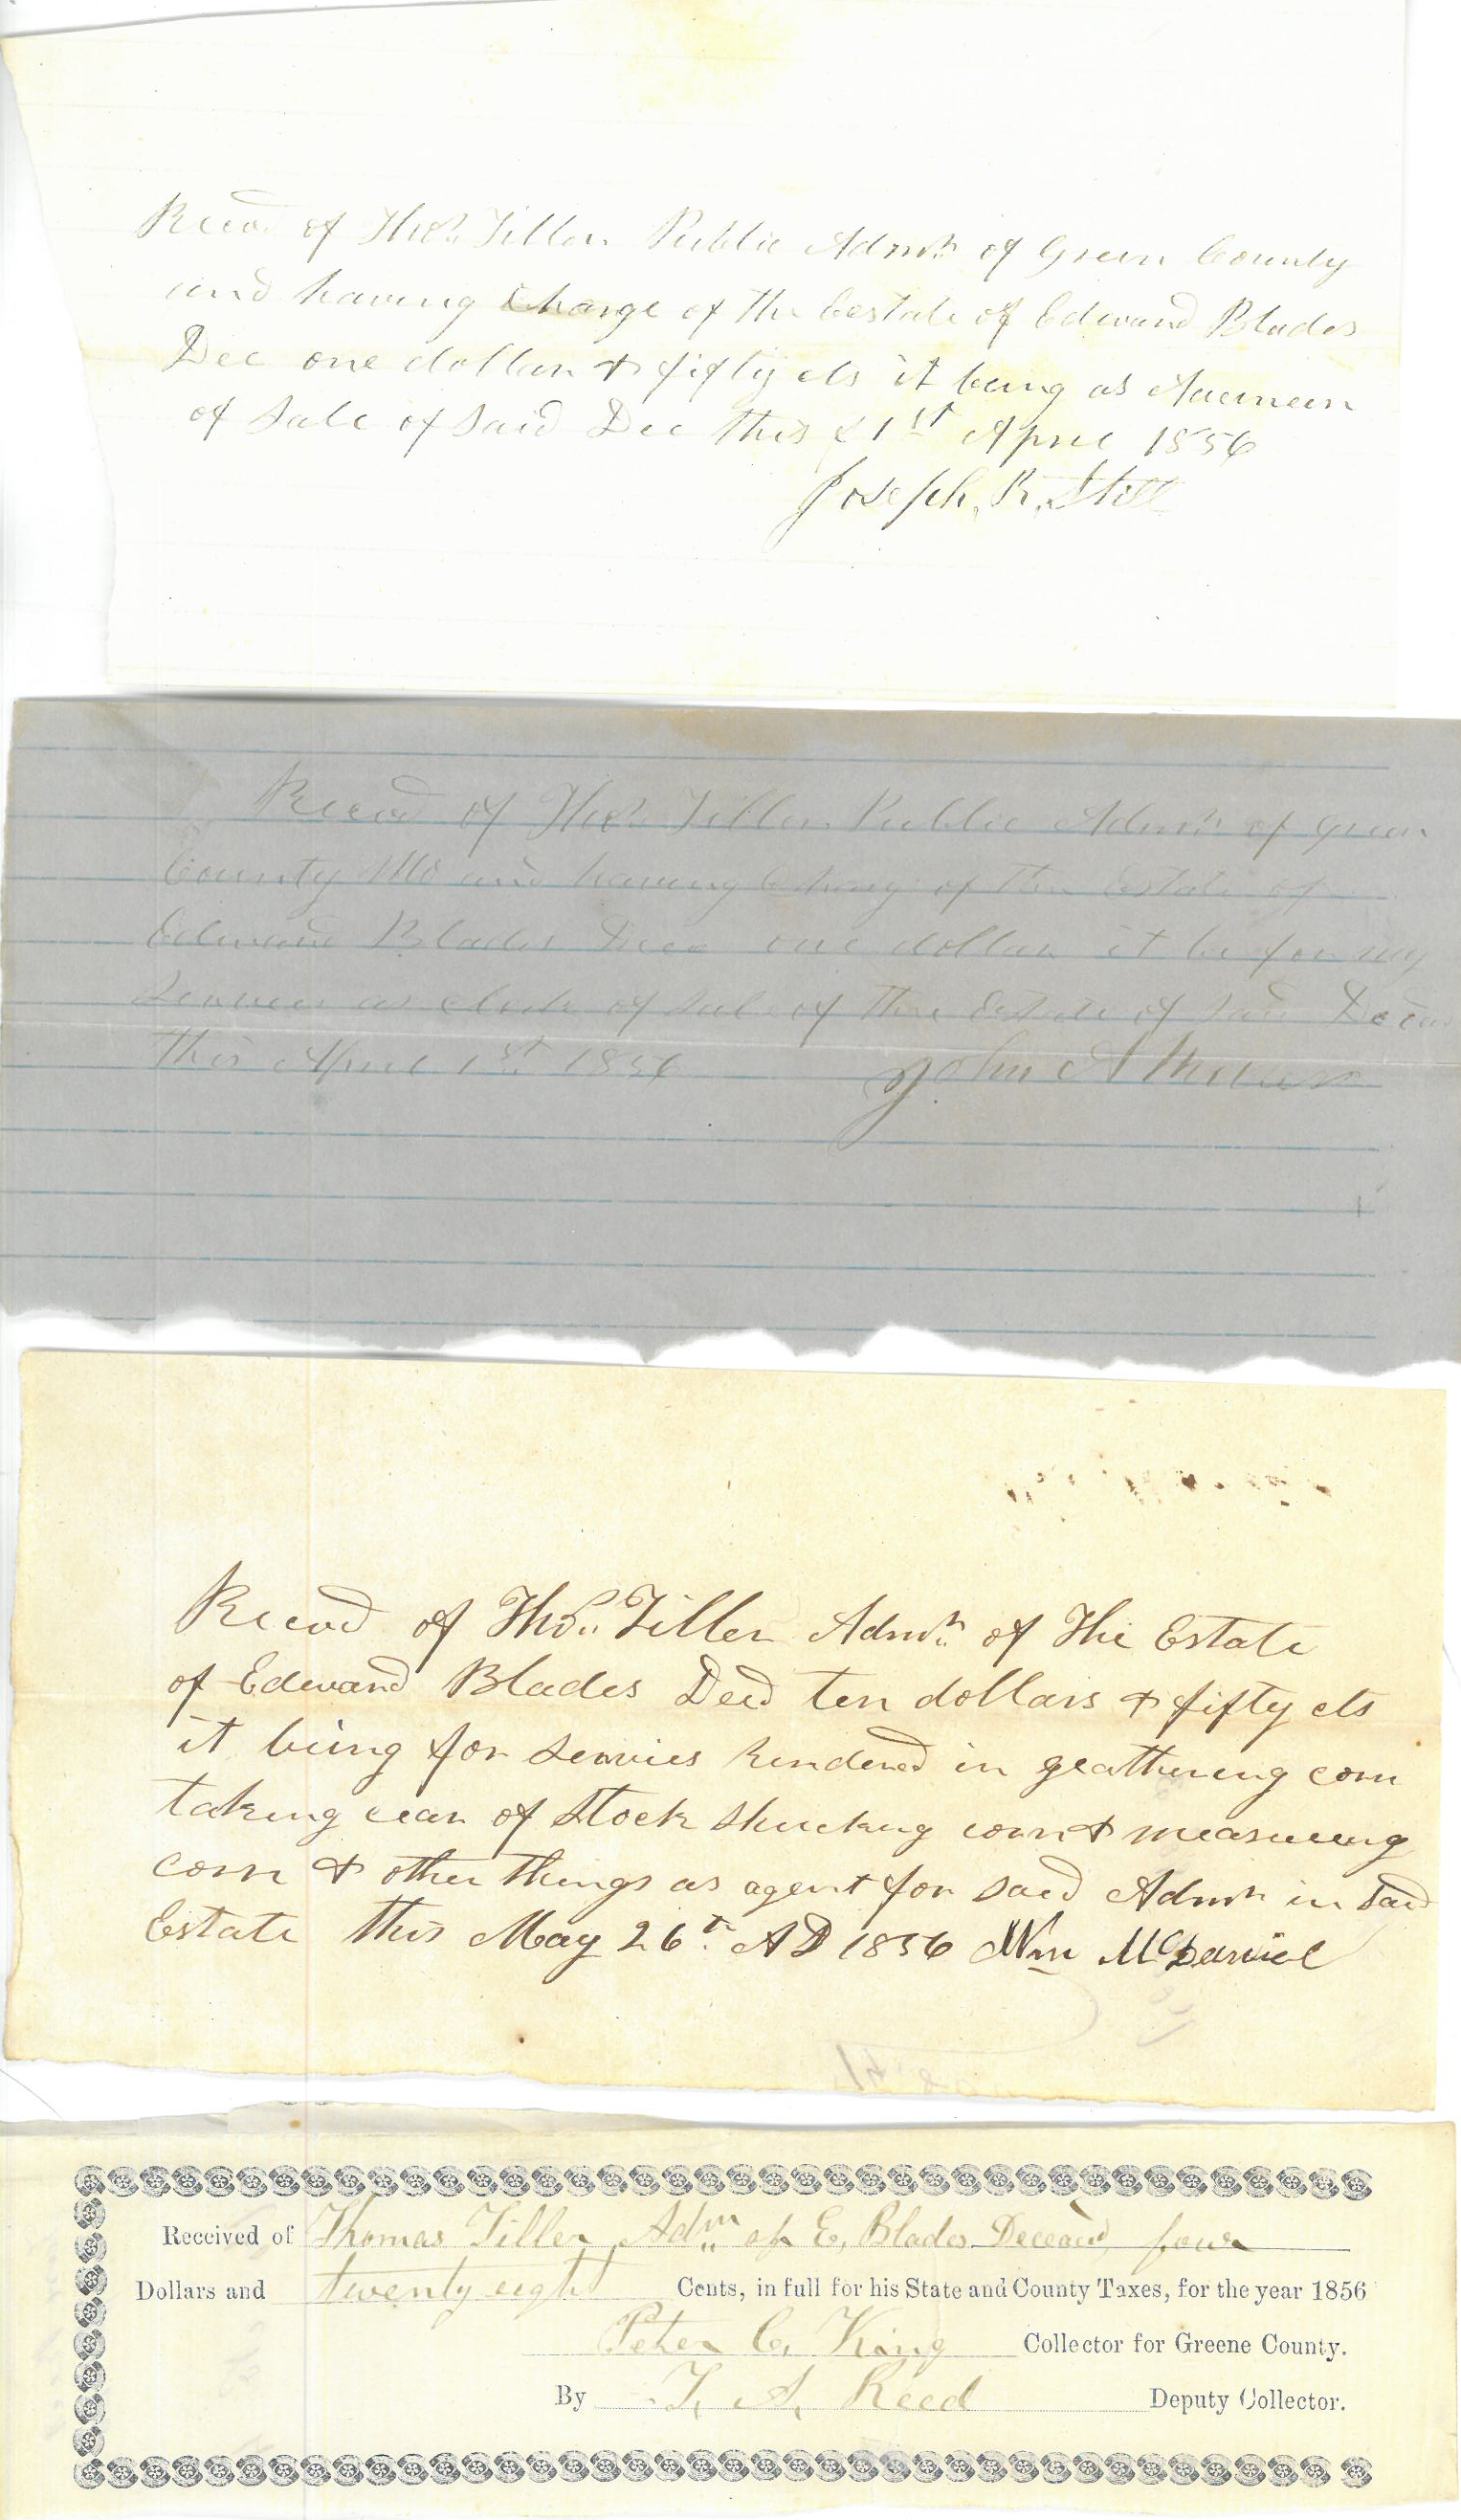 Recvd of Thos. Tiller Public Admr. of Green County
and having Charge of the Eestate of Edward Blades
Dec one dollar & fifty cts it being as
of Sale of Said Dec this 1st April 1856
Joseph. R.
Recvd of Thos. Tiller Public Admr. of Green
County Mo and having Charge of the Estate of
Edward Blades one dollar it be for my
Services as clerk of Sale of the Estate of Said
this April 1st 1856 John A
Recvd of Thos. Tiller Admr. of The Estate
of Edward Blades Decd ten dollars & fifty cts
it being for Servies Rendered in geathering corn
taking cear of Stock Shucking corn & measureing
corn & other things as agent for Said Admr in Said
Estate this May 26th. AD 1856 Wm McDaniel
Received of Thomas Tiller Adm. of E, Blades Deceasd four
Dollars and twenty eight Cents, in full for his State and County Taxes, for the year 1856
Peter C, King Collector for Greene County.
By T, A, Reed Deputy Collector.